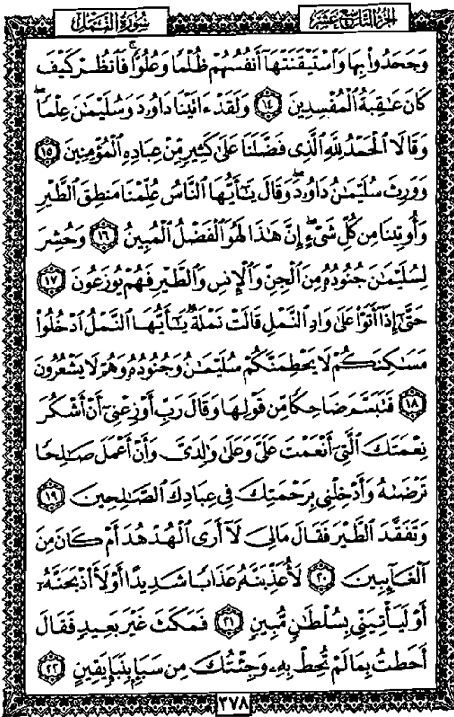 سُورَةُ النَّمْلِ
الجزء التاسع عشر
وَجَحَدُوا۟ بِهَا وَٱسْتَيْقَنَتْهَآ أَنفُسُهُمْ ظُلْمًا وَعُلُوًّا ۚ فَٱنظُرْ كَيْفَ
كَانَ عَٰقِبَةُ ٱلْمُفْسِدِينَ ١٤ وَلَقَدْ ءَاتَيْنَا دَاوُۥدَ وَسُلَيْمَٰنَ عِلْمًا ۖ
وَقَالَا ٱلْحَمْدُ لِلَّهِ ٱلَّذِى فَضَّلَنَا عَلَىٰ كَثِيرٍ مِّنْ عِبَادِهِ ٱلْمُؤْمِنِينَ ١٥
وَوَرِثَ سُلَيْمَٰنُ دَاوُۥدَ ۖ وَقَالَ يَٰٓأَيُّهَا ٱلنَّاسُ عُلِّمْنَا مَنطِقَ ٱلطَّيْرِ
وَأُوتِينَا مِن كُلِّ شَىْءٍ ۖ إِنَّ هَٰذَا لَهُوَ ٱلْفَضْلُ ٱلْمُبِينُ ١٦ وَحُشِرَ
لِسُلَيْمَٰنَ جُنُودُهُۥ مِنَ ٱلْجِنِّ وَٱلْإِنسِ وَٱلطَّيْرِ فَهُمْ يُوزَعُونَ ١٧
حَتَّىٰٓ إِذَآ أَتَوْا۟ عَلَىٰ وَادِ ٱلنَّمْلِ قَالَتْ نَمْلَةٌ يَٰٓأَيُّهَا ٱلنَّمْلُ ٱدْخُلُوا۟
مَسَٰكِنَكُمْ لَا يَحْطِمَنَّكُمْ سُلَيْمَٰنُ وَجُنُودُهُۥ وَهُمْ لَا يَشْعُرُونَ
١٨ فَتَبَسَّمَ ضَاحِكًا مِّن قَوْلِهَا وَقَالَ رَبِّ أَوْزِعْنِىٓ أَنْ أَشْكُرَ
نِعْمَتَكَ ٱلَّتِىٓ أَنْعَمْتَ عَلَىَّ وَعَلَىٰ وَٰلِدَىَّ وَأَنْ أَعْمَلَ صَٰلِحًا
تَرْضَىٰهُ وَأَدْخِلْنِى بِرَحْمَتِكَ فِى عِبَادِكَ ٱلصَّٰلِحِينَ ١٩
وَتَفَقَّدَ ٱلطَّيْرَ فَقَالَ مَا لِىَ لَآ أَرَى ٱلْهُدْهُدَ أَمْ كَانَ مِنَ
ٱلْغَآئِبِينَ ٢٠ لَأُعَذِّبَنَّهُۥ عَذَابًا شَدِيدًا أَوْ لَأَا۟ذْبَحَنَّهُۥٓ
أَوْ لَيَأْتِيَنِّى بِسُلْطَٰنٍ مُّبِينٍ ٢١ فَمَكَثَ غَيْرَ بَعِيدٍ فَقَالَ
أَحَطتُ بِمَا لَمْ تُحِطْ بِهِۦ وَجِئْتُكَ مِن سَبَإٍۭ بِنَبَإٍ يَقِينٍ ٢٢
٣٧٨